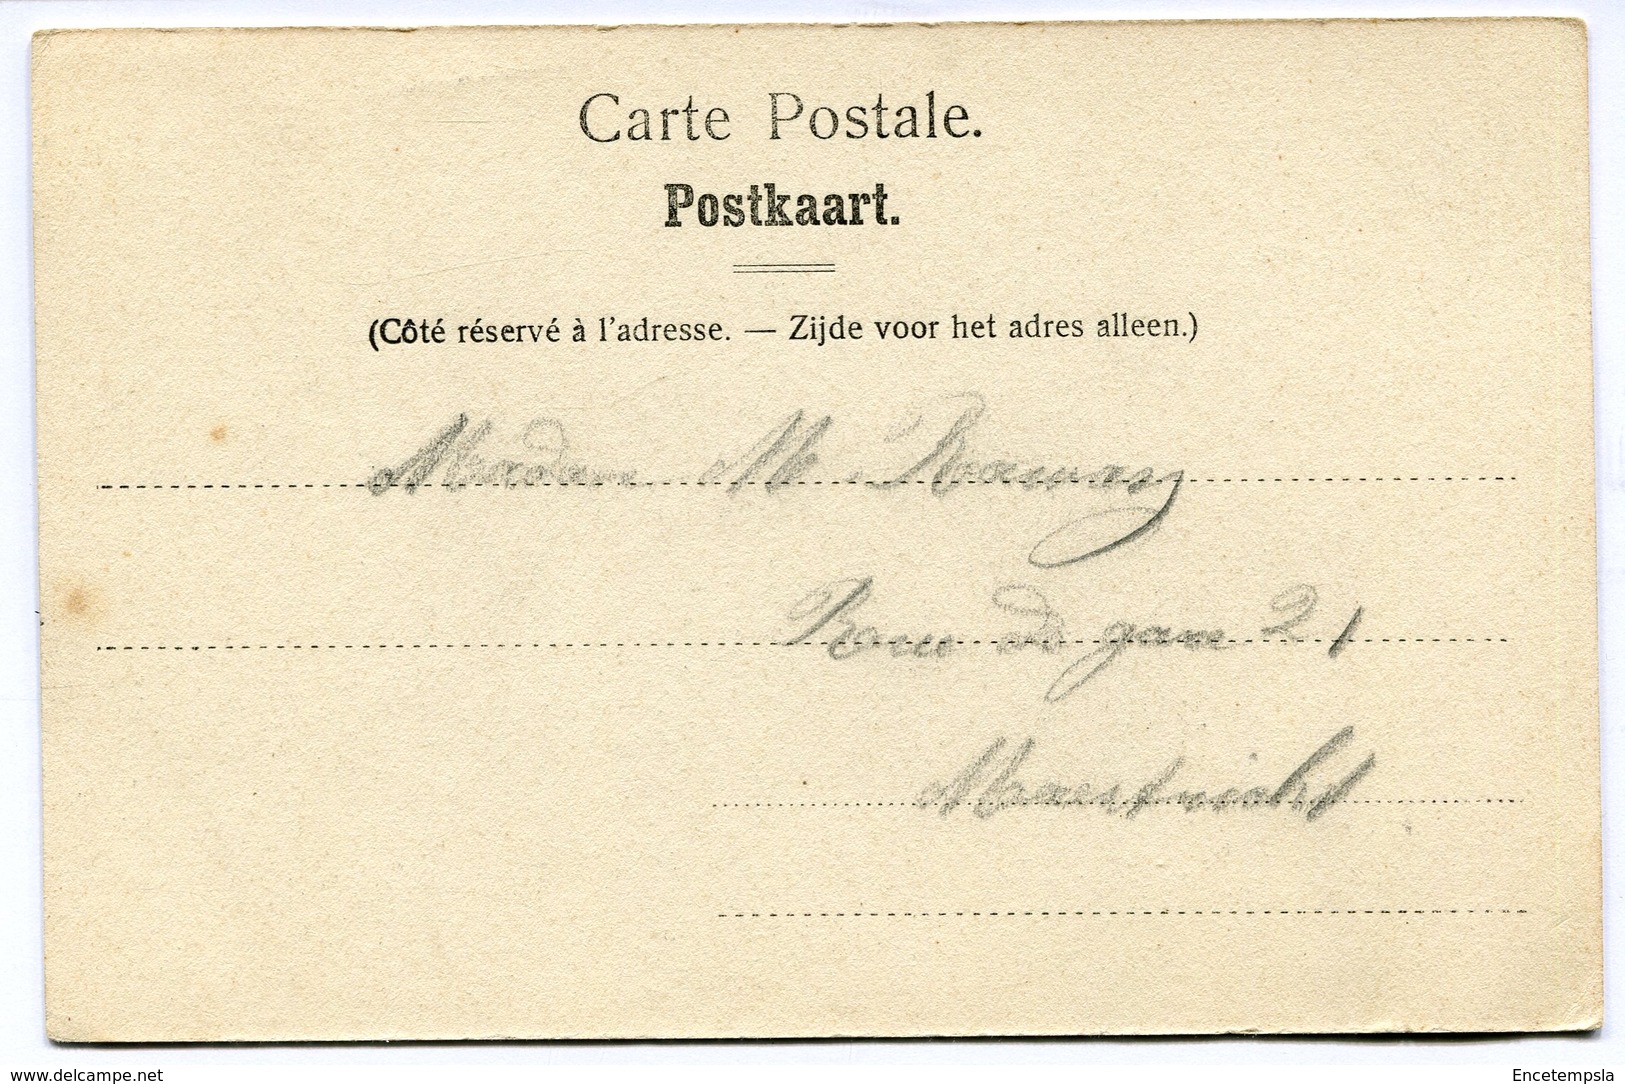 Carte Postale.
Postkaart.
(Côté réservé à l'adresse. — Zijde voor het adres alleen.)
Madam M.
21
Maestricht
delcampe.net
Encetempsla